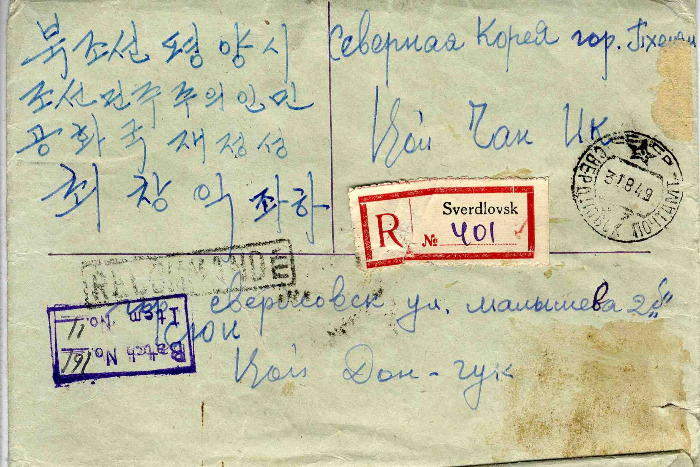 북조선 평양시
조선민주주의인민
공화국 재정성
최창익 좌하
Северная Корея гор. Пхенян
Цой Чан Ик
СВЕРДЛОВСК ПОЧТАМТ
31849
R
Sverdlovsk
№ 401
RECOMMANDE
гор. Свердловск ул. Малышева
Цой Дон-гук
Batch No. 161
Item No. 11